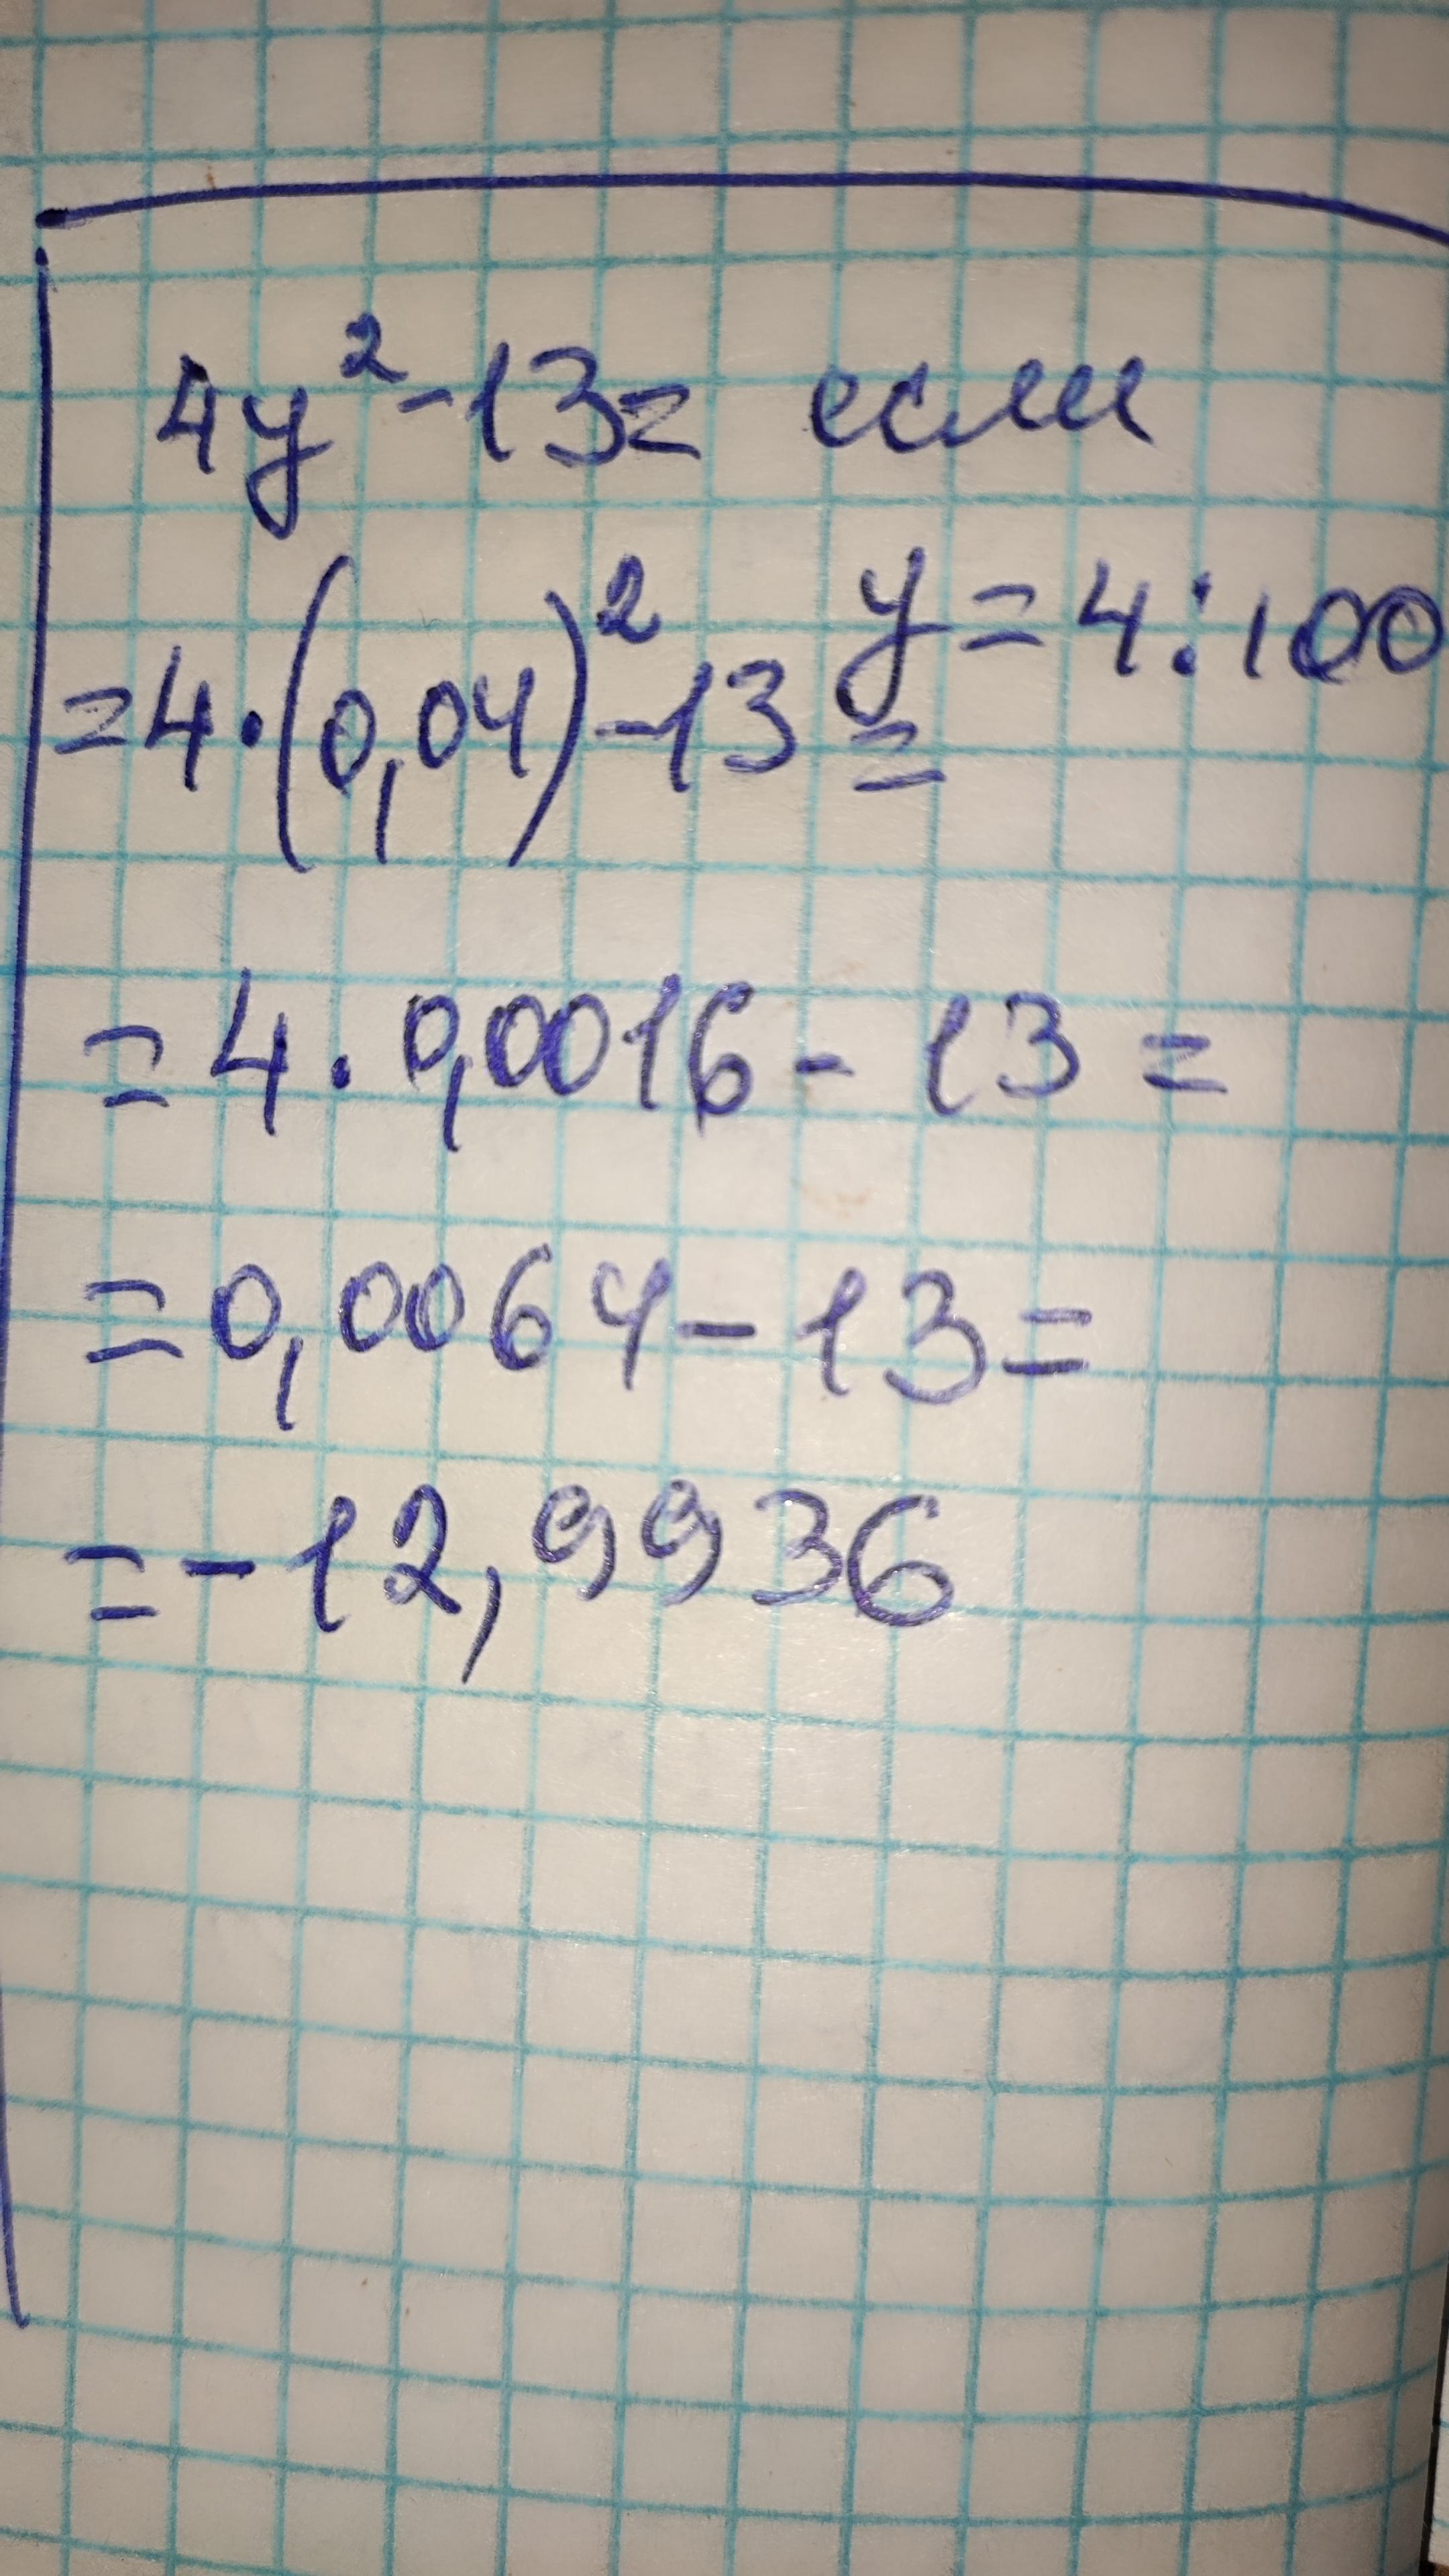 4y²-13= если
y=4:100
=4·(0,04)²-13=
=4·0,0016-13=
=0,0064-13=
=-12,9936